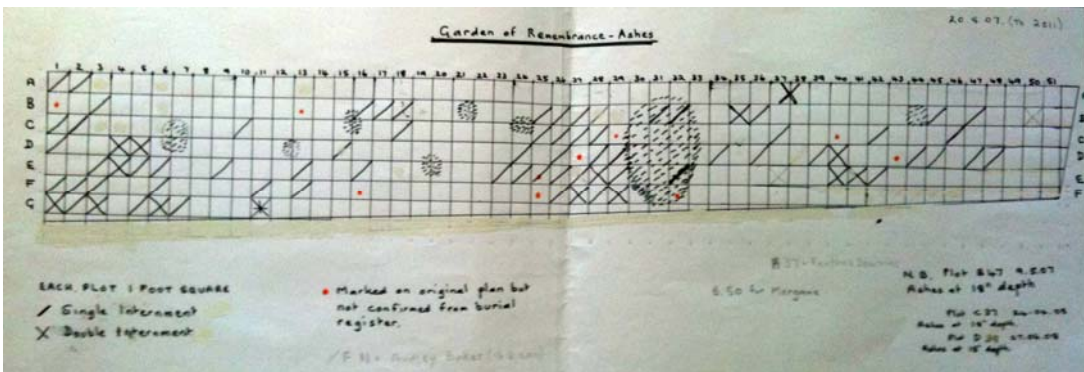 20.4.07. (To 2011)
Garden of Remembrance - Ashes
1 2 3 4 5 6 7 8 9 10 11 12 13 14 15 16 17 18 19 20 21 22 23 24 25 26 27 28 29 30 31 32 33 34 35 36 37 38 39 40 41 42 43 44 45 46 47 48 49 50 51
A
B B
C C
D D
E E
F F
G
EACH PLOT 1 FOOT SQUARE
/ Single Interment
X Double Interment
• Marked on original plan but
not confirmed from burial
register.
N.B. Plot B47 9.5.07
Ashes at 18" depth
Plot C37
Ashes at 18" depth.
Plot D
Ashes at 15" depth.